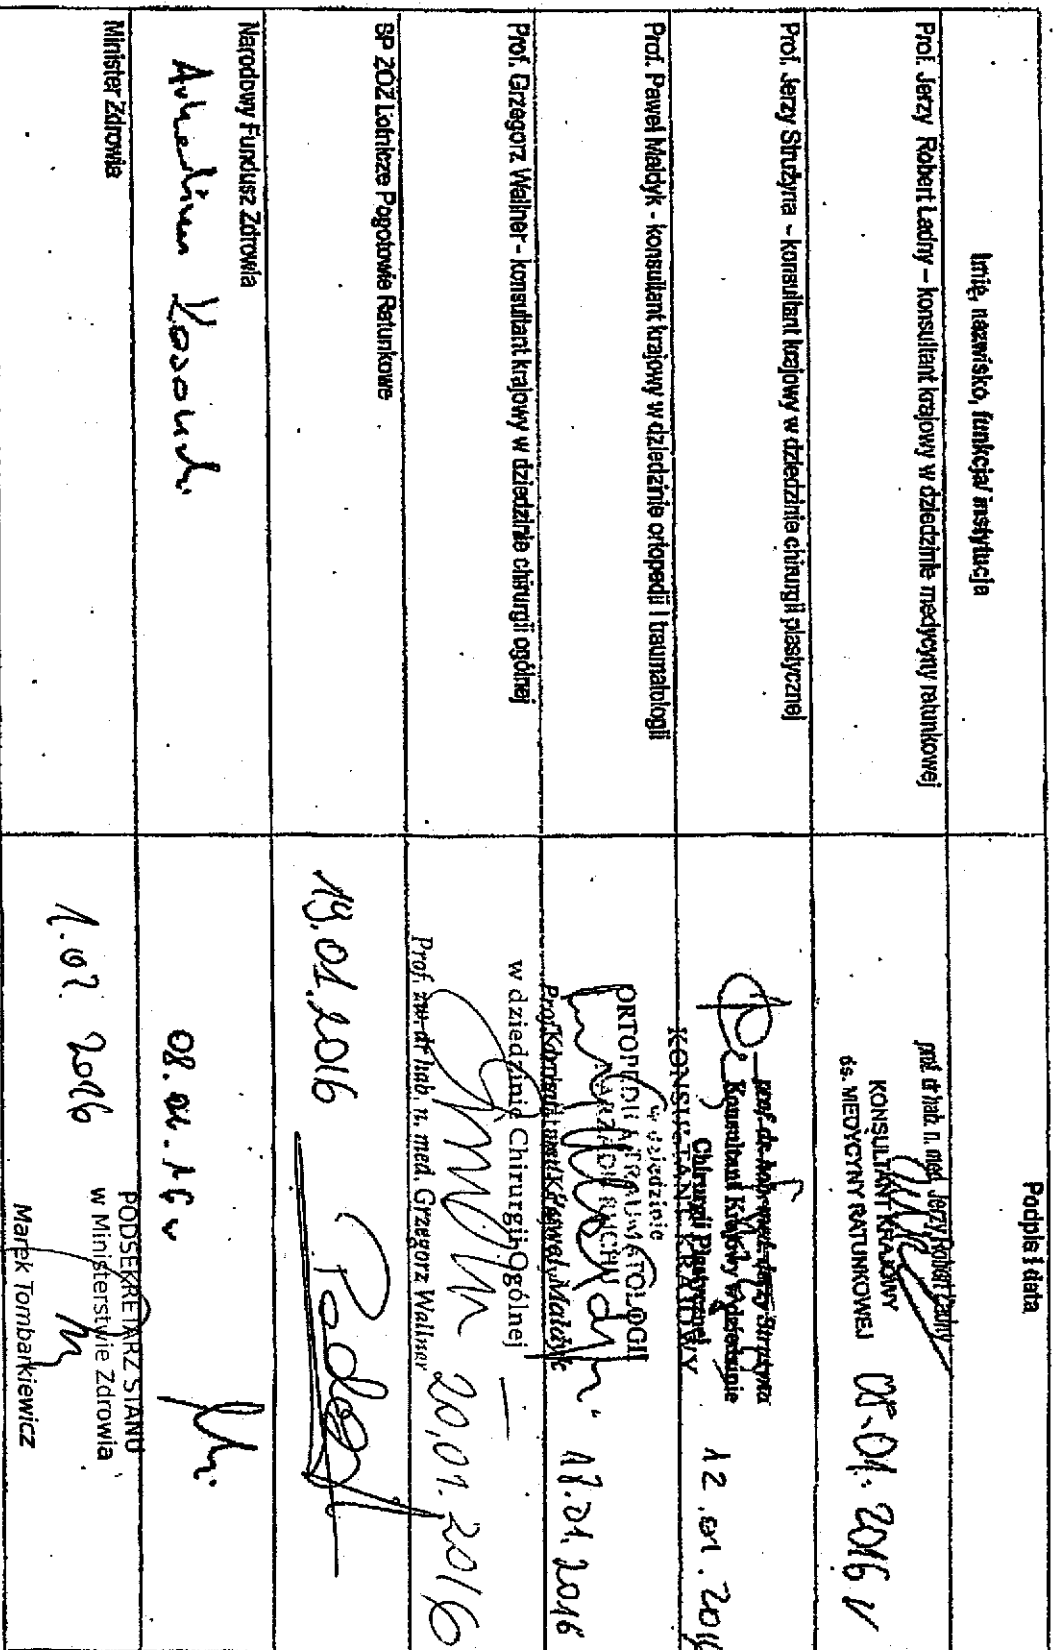 Imię, nazwisko, funkcja/ instytucja
Podpis i data
Prof. Jerzy Robert Ładny – konsultant krajowy w dziedzinie medycyny ratunkowej
prof. dr hab. n. med. Jerzy Robert Ładny
KONSULTANT KRAJOWY
ds. MEDYCYNY RATUNKOWEJ
01. 2016 r
Prof. Jerzy Strużyna – konsultant krajowy w dziedzinie chirurgii plastycznej
prof. dr hab. med. Jerzy Strużyna
Konsultant Krajowy w dziedzinie
Chirurgii Plastycznej
12.01.
Prof. Paweł Małdyk - konsultant krajowy w dziedzinie ortopedii i traumatologii
KONSULTANT KRAJOWY
w dziedzinie
ORTOPEDII I TRAUMATOLOGII
NARZĄDU RUCHU
Paweł Małdyk
17.01.2016
Prof. Grzegorz Wallner - konsultant krajowy w dziedzinie chirurgii ogólnej
w dziedzinie Chirurgii Ogólnej
Prof. zw. dr hab. n. med. Grzegorz Wallner
20.01.2016
SP ZOZ Lotnicze Pogotowie Ratunkowe
19.01.2016
Narodowy Fundusz Zdrowia
08.
Minister Zdrowia
1.02. 2016
PODSEKRETARZ STANU
w Ministerstwie Zdrowia
Marek Tombarkiewicz